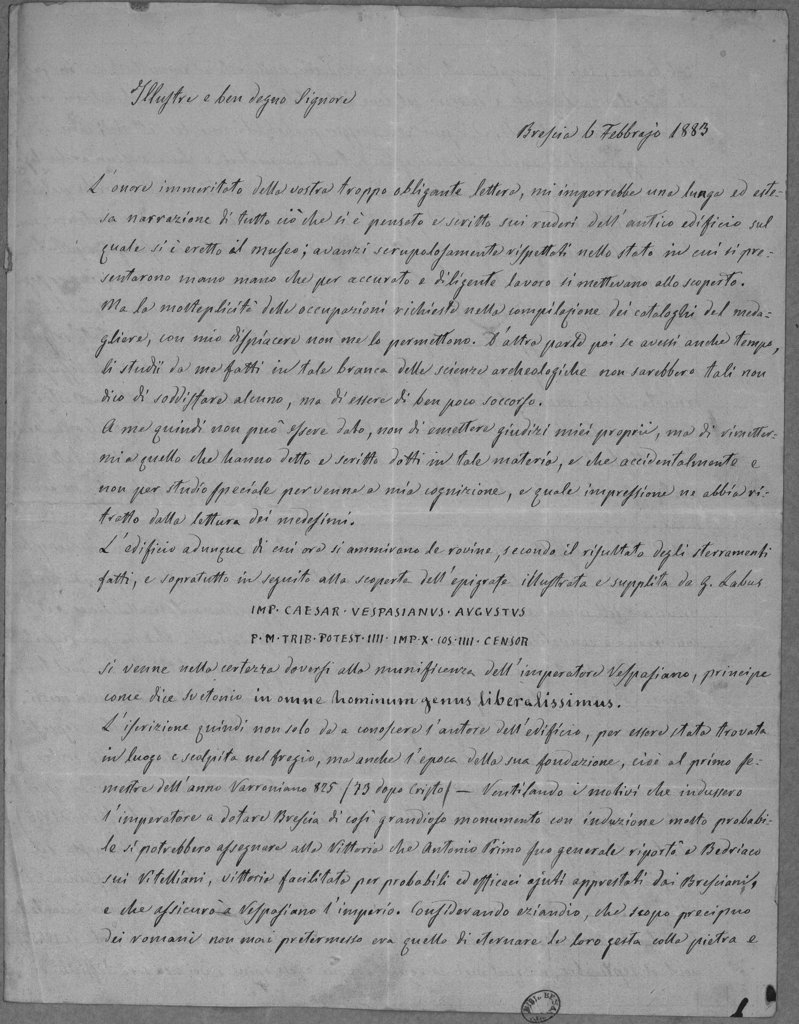 Illustre e ben degno Signore
Brescia 6 Febbrajo 1883
L'onore immeritato della vostra troppo obligante lettera, mi imporrebbe una lunga ed este-
sa narrazione di tutto ciò che si è pensato e scritto sui ruderi dell'antico edificio sul
quale si è eretto il museo; avanzi scrupolosamente rispettati nello stato in cui si pre-
sentarono mano mano che per accurato e diligente lavoro si mettevano allo scoperto.
Ma la molteplicità delle occupazioni richieste nella compilazione dei cataloghi del meda-
gliere, con mio dispiacere non me lo permettono. D'altra parte poi se avessi anche tempo,
li studii da me fatti in tale branca delle scienze archeologiche non sarebbero tali non
dico di soddisfare alcuno, ma di essere di ben poco soccorso.
A me quindi non può essere dato, non di emettere giudizi miei proprii, ma di rimetter-
mi a quello che hanno detto e scritto dotti in tale materia, e che accidentalmente e
non per studio speciale pervenne a mia cognizione, e quale impressione ne abbia ri-
tratto dalla lettura dei medesimi.
L'edificio adunque di cui ora si ammirano le rovine, secondo il risultato degli sterramenti
fatti, e sopratutto in seguito alla scoperta dell'epigrafe illustrata e supplita da G. Labus
IMP· CAESAR· VESPASIANVS· AVGVSTVS
P· M· TRIB· POTEST· IIII· IMP· X· COS· IIII· CENSOR
si venne nella certezza doversi alla munificenza dell'imperatore Vespasiano, principe
come dice Svetonio in omne hominum genus liberalissimus.
L'iscrizione quindi non solo da a conoscere l'autore dell'edificio, per essere stata trovata
in luogo e scolpita nel fregio, ma anche l'epoca della sua fondazione, cioè al primo se-
mestre dell'anno Varroniano 825 /73 dopo Cristo/ — Ventilando i motivi che indussero
l'imperatore a dotare Brescia di così grandioso monumento con induzione molto probabi-
le si potrebbero assegnare alla Vittoria che Antonio Primo suo generale riportò a Bedriaco
sui Vitelliani, vittoria facilitata per probabili ed efficaci ajuti apprestati dai Bresciani,
e che assicurò a Vespasiano l'imperio. Considerando eziandio, che scopo precipuo
dei romani non mai pretermesso era quello di eternare le loro gesta colla pietra e